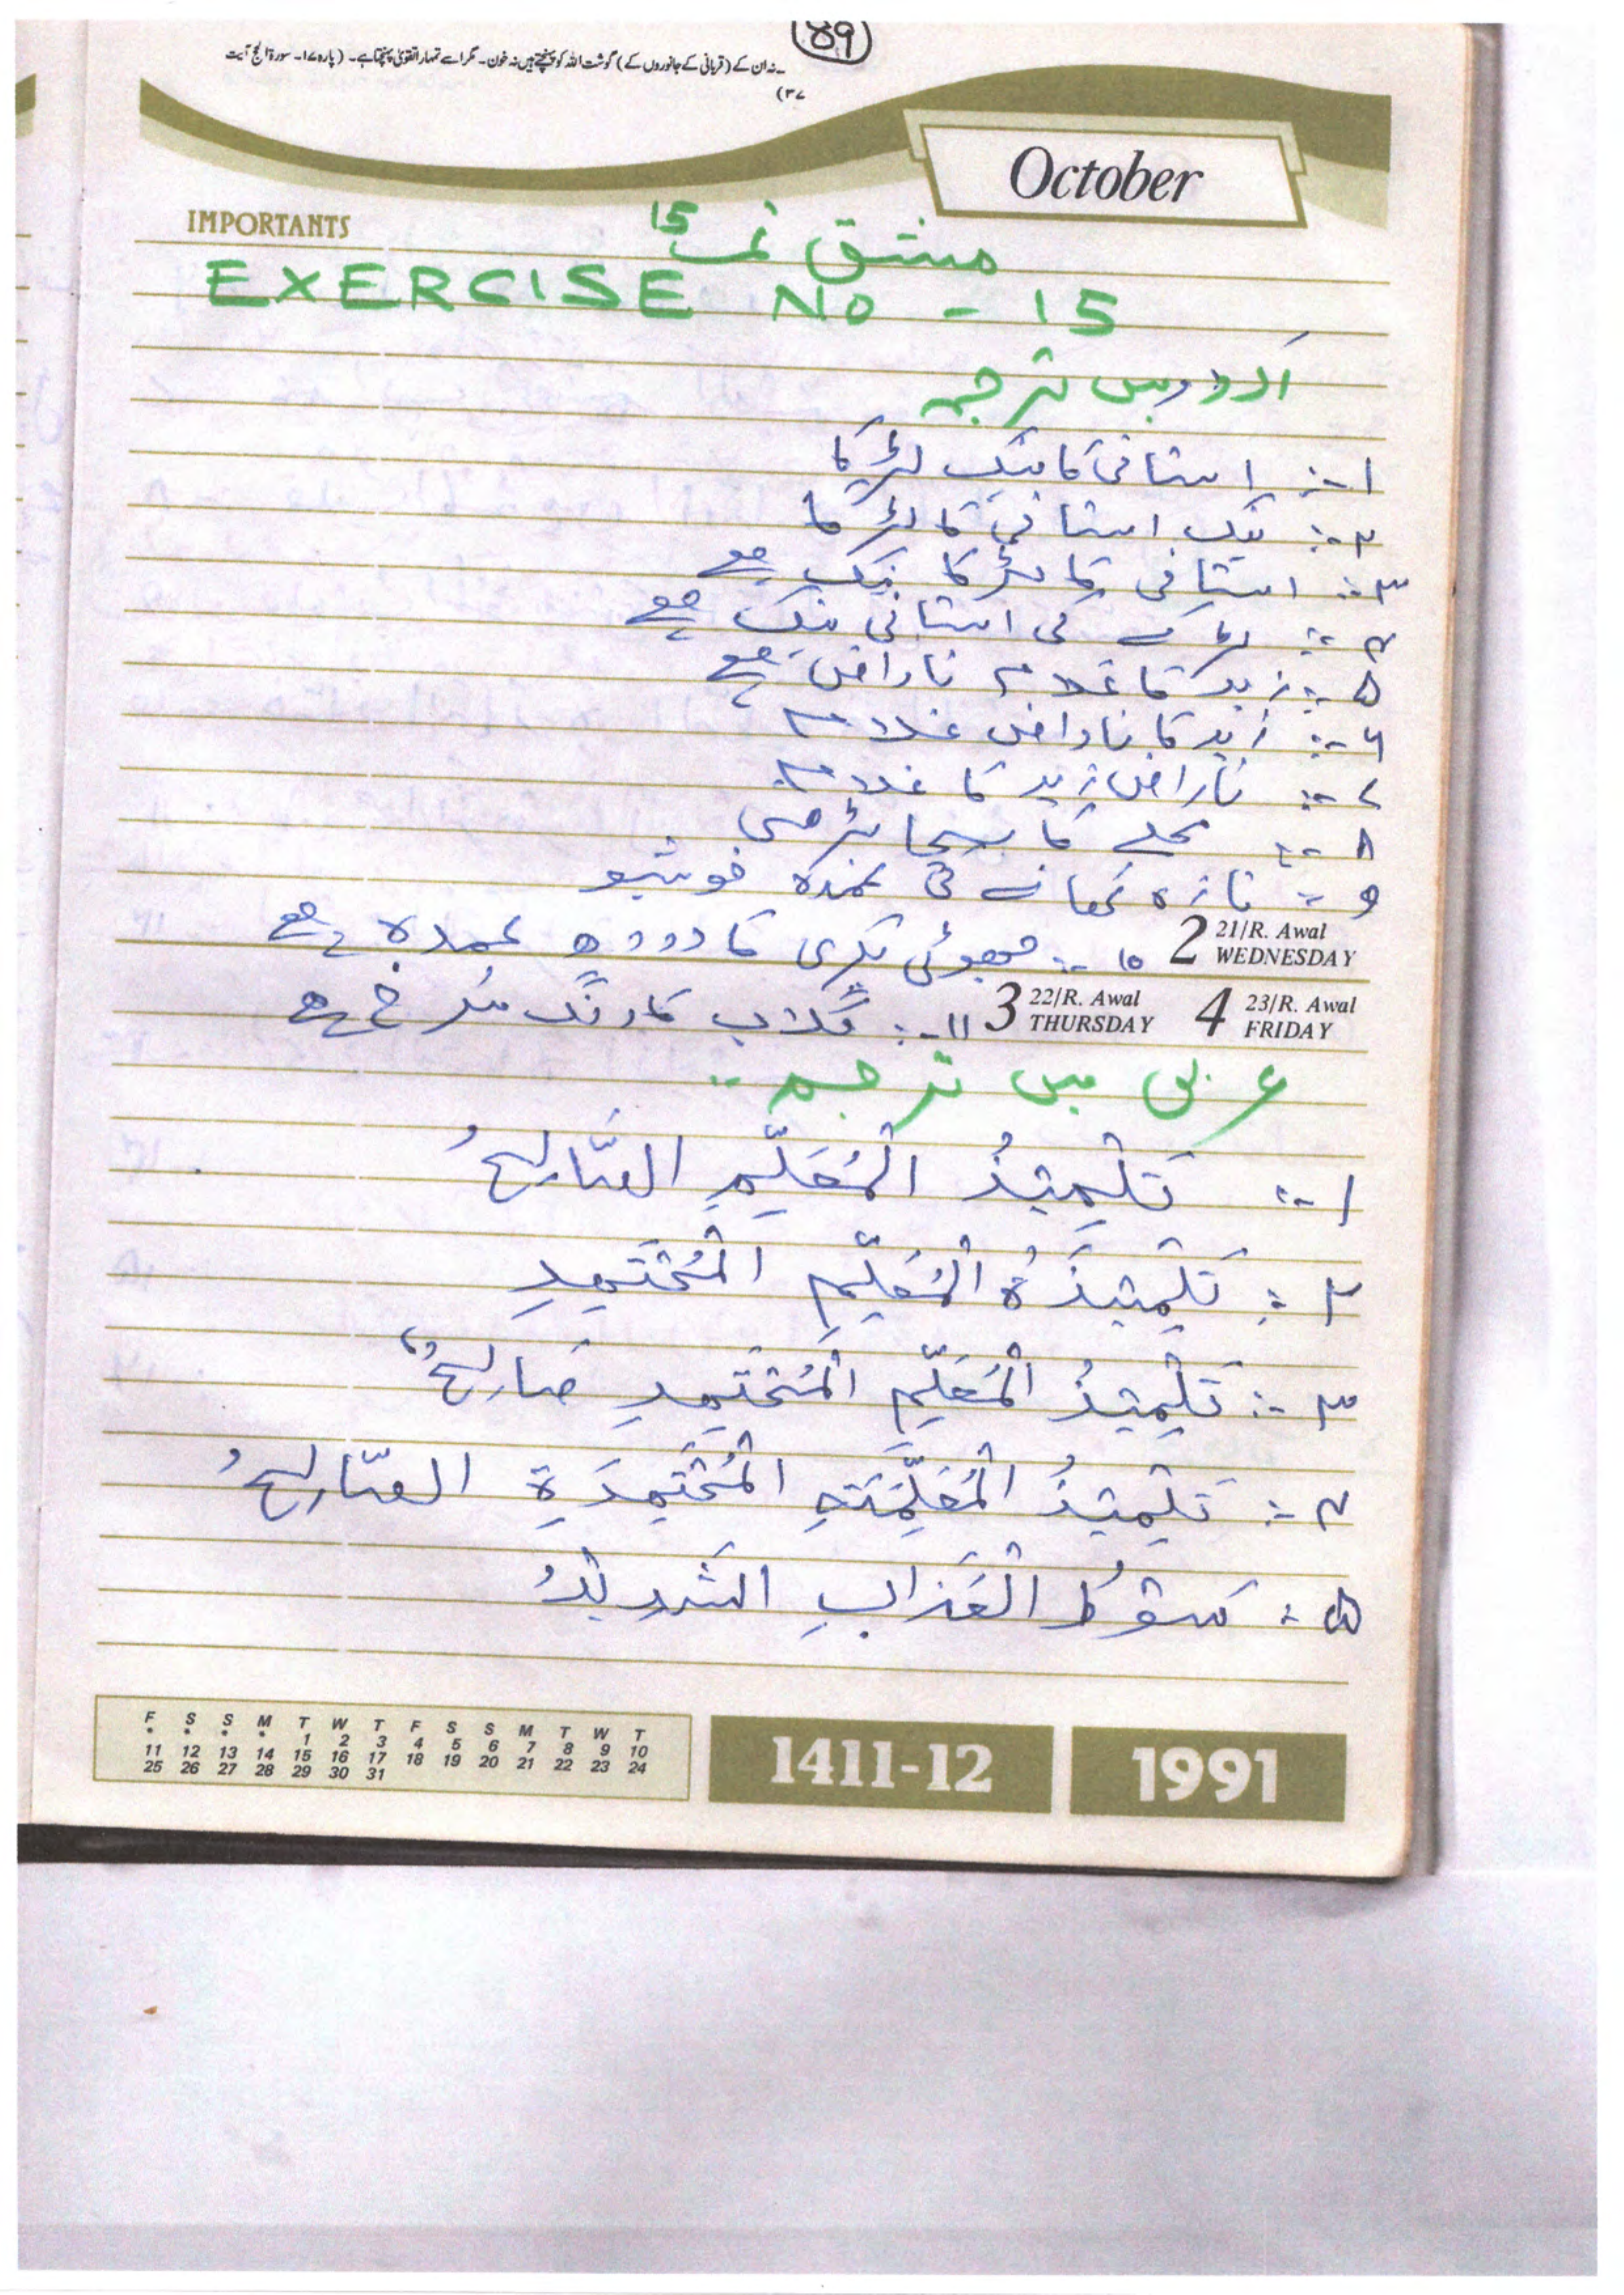 89
۔نہ ان کے (قربانی کے جانوروں کے) گوشت اللہ کو پہنچتے ہیں نہ خون۔ مگر اسے تمہارا تقویٰ پہنچتا ہے۔ (پارہ ۱۷۔ سورۃ الحج آیت
۳۷)
October
IMPORTANTS
مشق نمبر 15
EXERCISE No - 15
اردو میں ترجمہ
۱-: استانی کا نیک لڑکا
۲-: نیک استانی کا لڑکا
۳-: استانی کا لڑکا نیک ہے
۴-: لڑکے کی استانی نیک ہے
۵-: زید کا غلام ناراض ہے
۶-: زید کا ناراض غلام
۷-: ناراض زید کا غلام
۸-: محلے کا سچا بڑھئی
۹-: تازہ کھانے کی عمدہ خوشبو
2 21/R. Awal WEDNESDAY
۱۰-: چھوٹی بکری کا دودھ عمدہ ہے
3 22/R. Awal THURSDAY 4 23/R. Awal FRIDAY
۱۱-: گلاب کا رنگ سرخ ہے
عربی میں ترجمہ :-
۱-: تِلْمِیْذُ الْمُعَلِّمِ الصَّالِحُ
۲-: تِلْمِیْذَۃُ الْمُعَلِّمِ الْمُجْتَهِدِ
۳-: تِلْمِیْذُ الْمُعَلِّمِ الْمُجْتَهِدِ صَالِحٌ
۴-: تِلْمِیْذُ الْمُعَلِّمَۃِ الْمُجْتَهِدَۃِ الصَّالِحُ
۵-: سَوْطُ الْعَذَابِ الشَّدِیْدُ
F S S M T W T F S S M T W T
* * * * 1 2 3 4 5 6 7 8 9 10
11 12 13 14 15 16 17 18 19 20 21 22 23 24
25 26 27 28 29 30 31
1411-12
1991